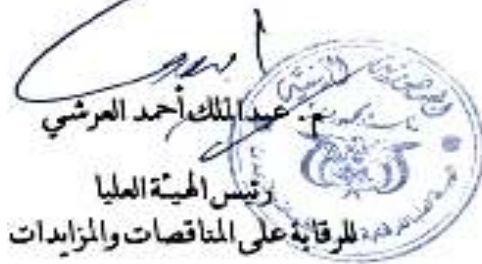 م. عبدالملك أحمد العرشي
رئيس الهيئة العليا
للرقابة على المناقصات والمزايدات